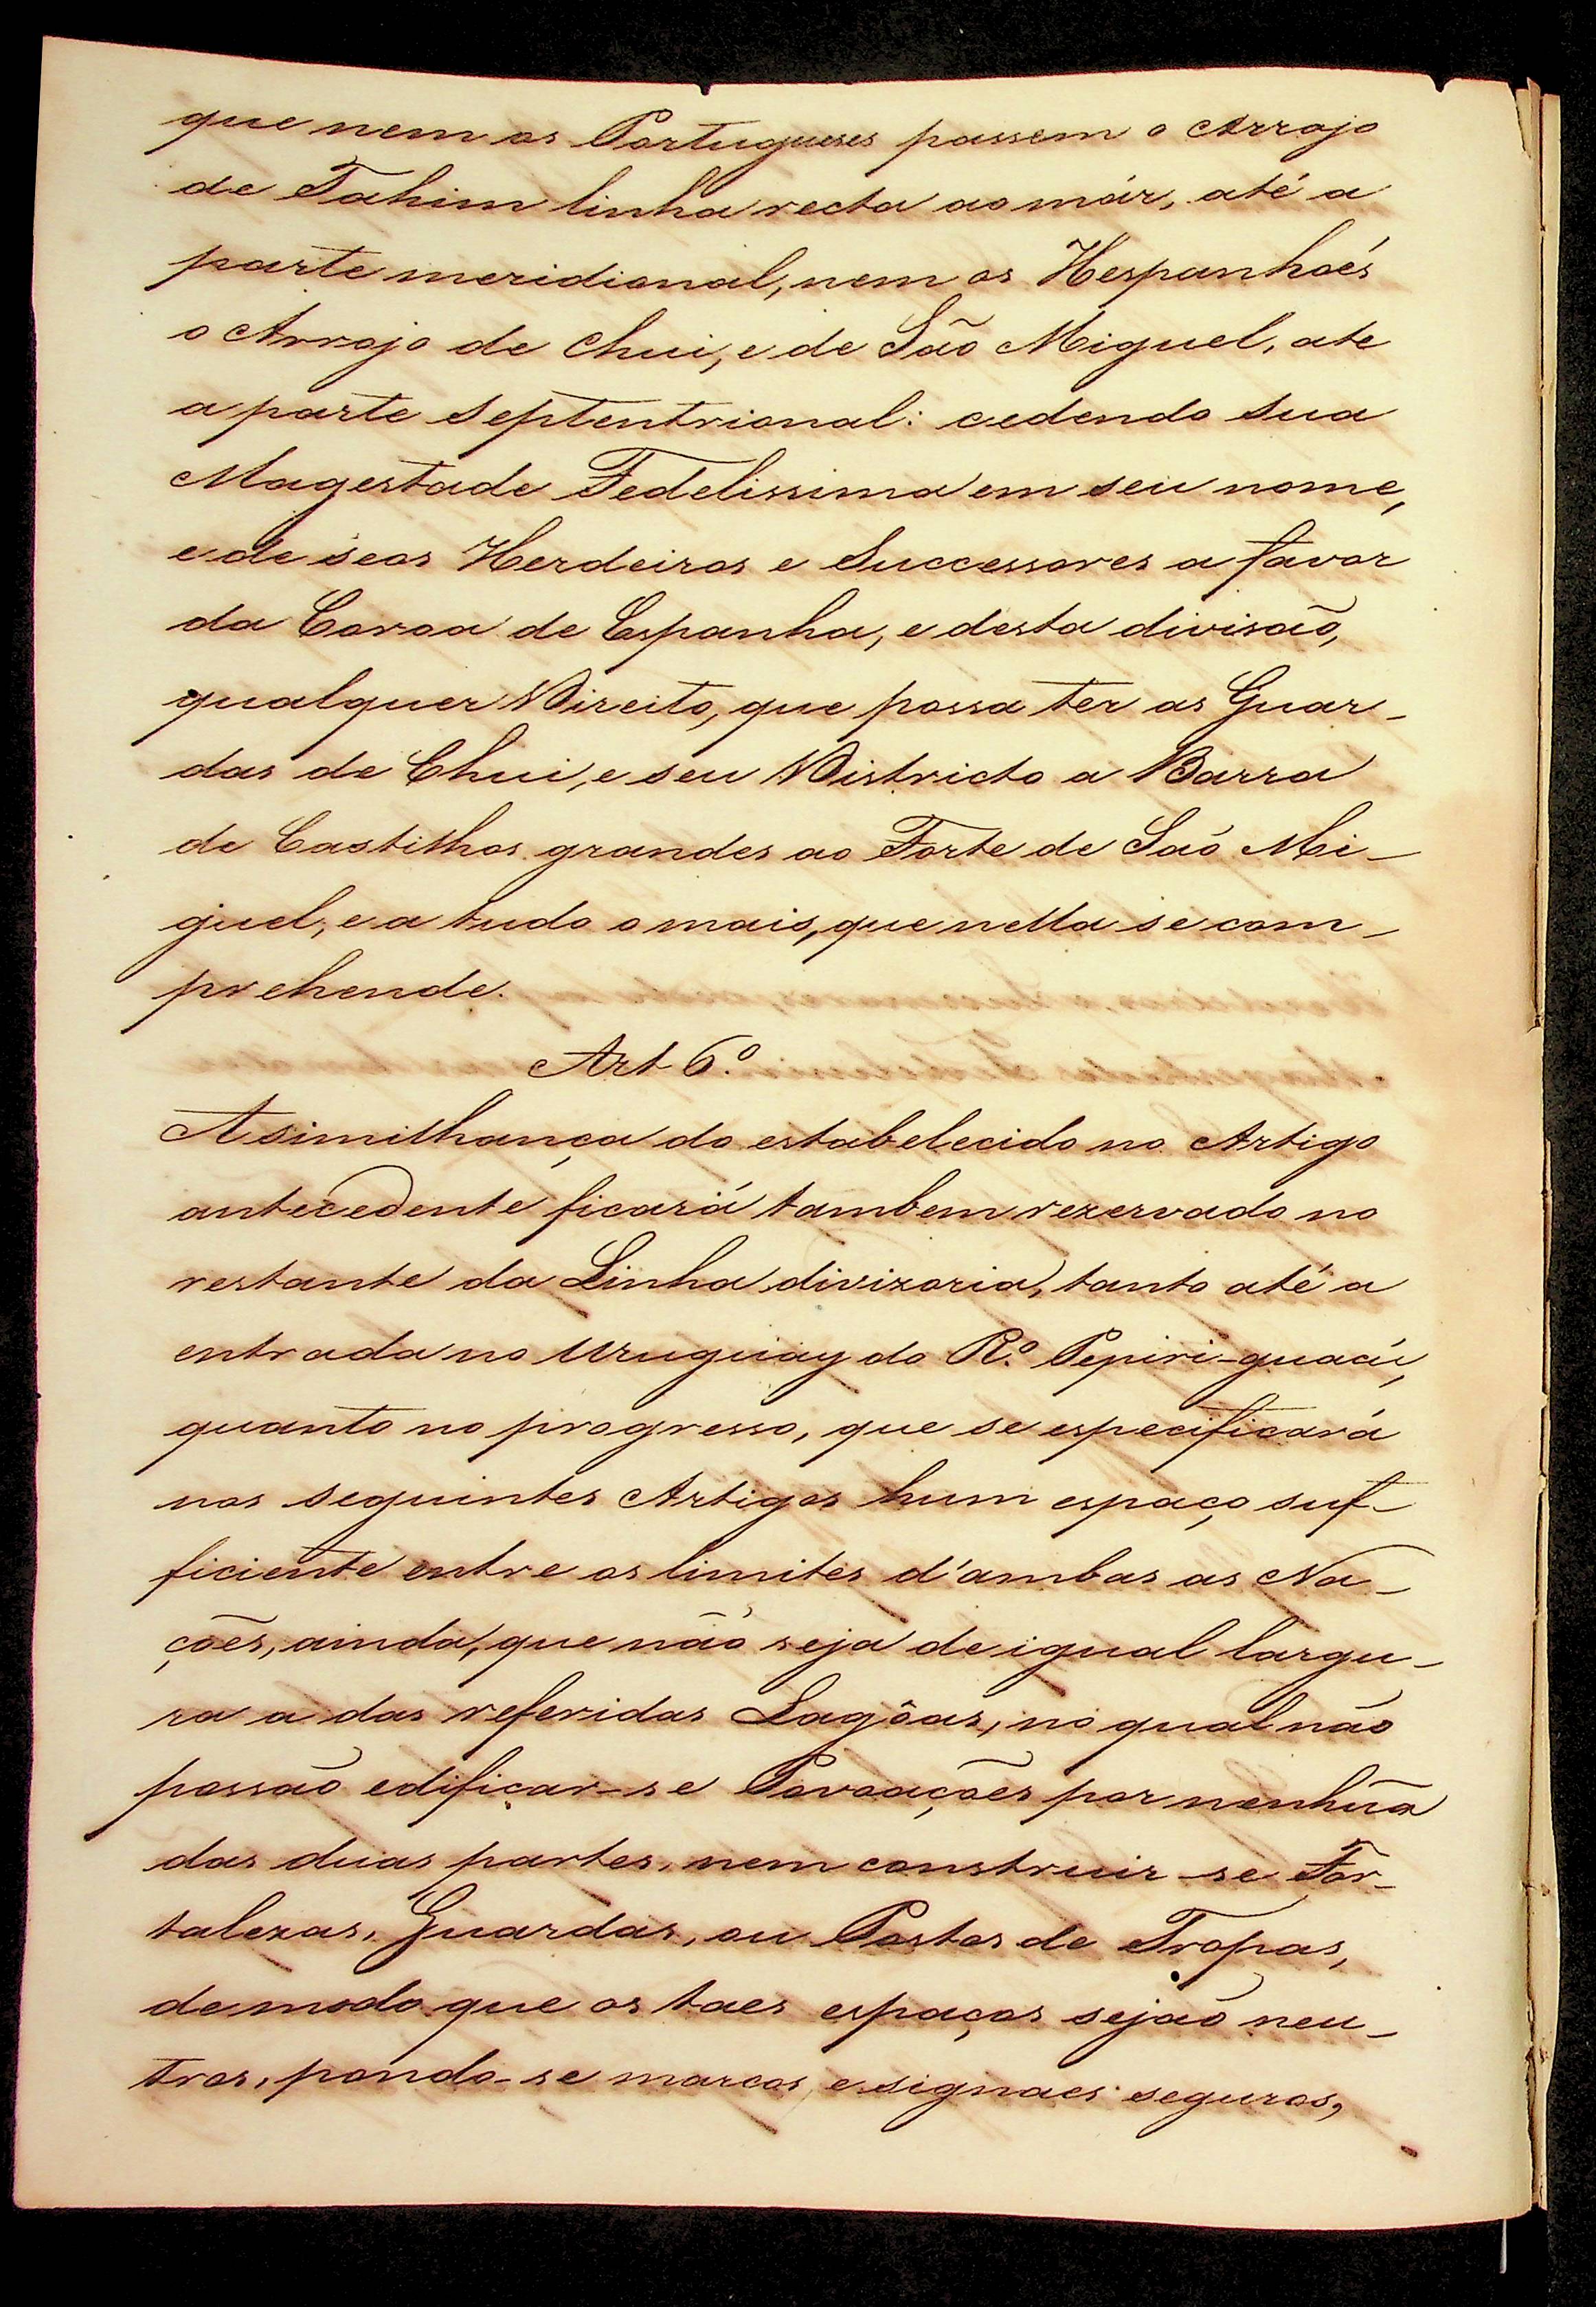 que nem os Portugueses passem o Arrojo
de Tahim linha recta ao már, até a
parte meridional, nem os Hespanhóes
o Arrojo de Chui, e de São Miguel, ate
a parte septentrional: cedendo sua
Magestade Fedelissima em seu nome,
e de seos Herdeiros e Successores a favor
da Coroa de Espanha, e desta divisão,
qualquer Direito, que possa ter as Guar-
das de Chui, e seu Districto a Barra
de Castilhos grandes ao Forte de São Mi-
guel, e a tudo o mais, que nella se com-
prehende.
Art 6.º
A similhança do estabelecido no Artigo
antecedente ficará tambem rezervado no
restante da Linha divizoria, tanto até a
entrada no Uruguay do R.º Pepiri-guacú,
quanto no progresso, que se especificará
nos seguintes Artigos hum espaço suf-
ficiente entre os limites d'ambas as Na-
ções, ainda, que não seja de igual largu-
ra a das referidas Lagôas, no qual não
possão edificar-se Povoações por nenhũa
das duas partes, nem construir-se For-
talezas, Guardas, ou Postos de Tropas,
de modo que os taes espaços sejão neu-
tros, pondo-se marcos, e signaes seguros,